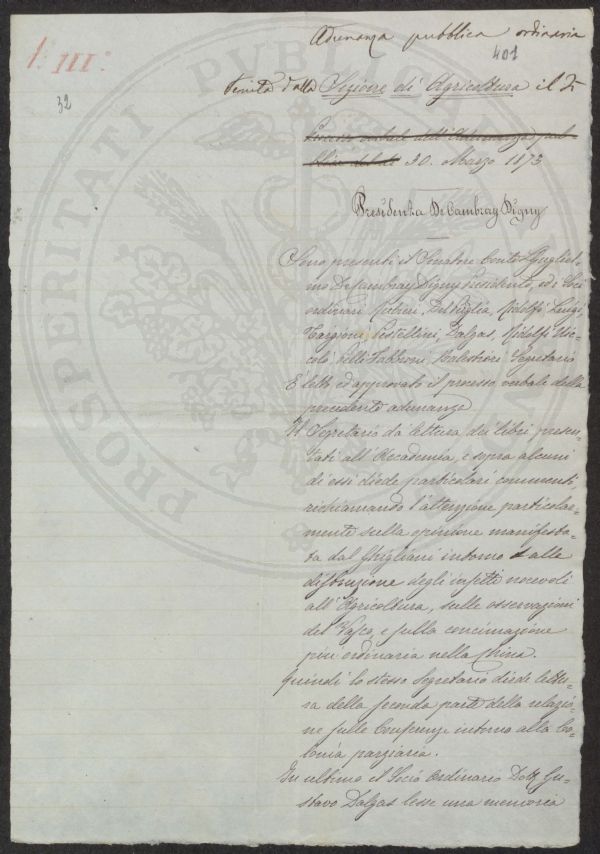 Adunanza pubblica ordinaria
401
I. III.
32
tenuta dalla Sezione di Agricoltura il dì
Processo verbale dell'Adunanza pub-
blica del dì 30. Marzo 1873
Presidenza De Cambray Digny
Sono presenti il Senatore Conte Guglielmo
De Cambray Digny Presidente, ed i Soci
ordinari Del Puglia, Ridolfi Luigi,
Targioni, Pestellini, Dalgas, Ridolfi Nic-
colò, Pelli Fabbroni, Segretario
È letto ed approvato il processo verbale della
precedente adunanza
Il Segretario da lettura dei libri presen-
tati all'Accademia, e sopra alcuni
di essi diede particolari commenti
richiamando l'attenzione particolar-
mente sulla opinione manifesta-
ta dal Ghigliani intorno alla
distruzione degli insetti nocevoli
all'Agricoltura, sulle osservazioni
del Vasco e sulla concimazione
più ordinaria nella China.
Quindi lo stesso Segretario diede lettu-
ra della seconda parte della relazio-
ne sulle Conferenze intorno alla Co-
lonia parziaria.
In ultimo il Socio Ordinario Dott. Gu-
stavo Dalgas lesse una memoria
PROSPERITATI PUBLICAE